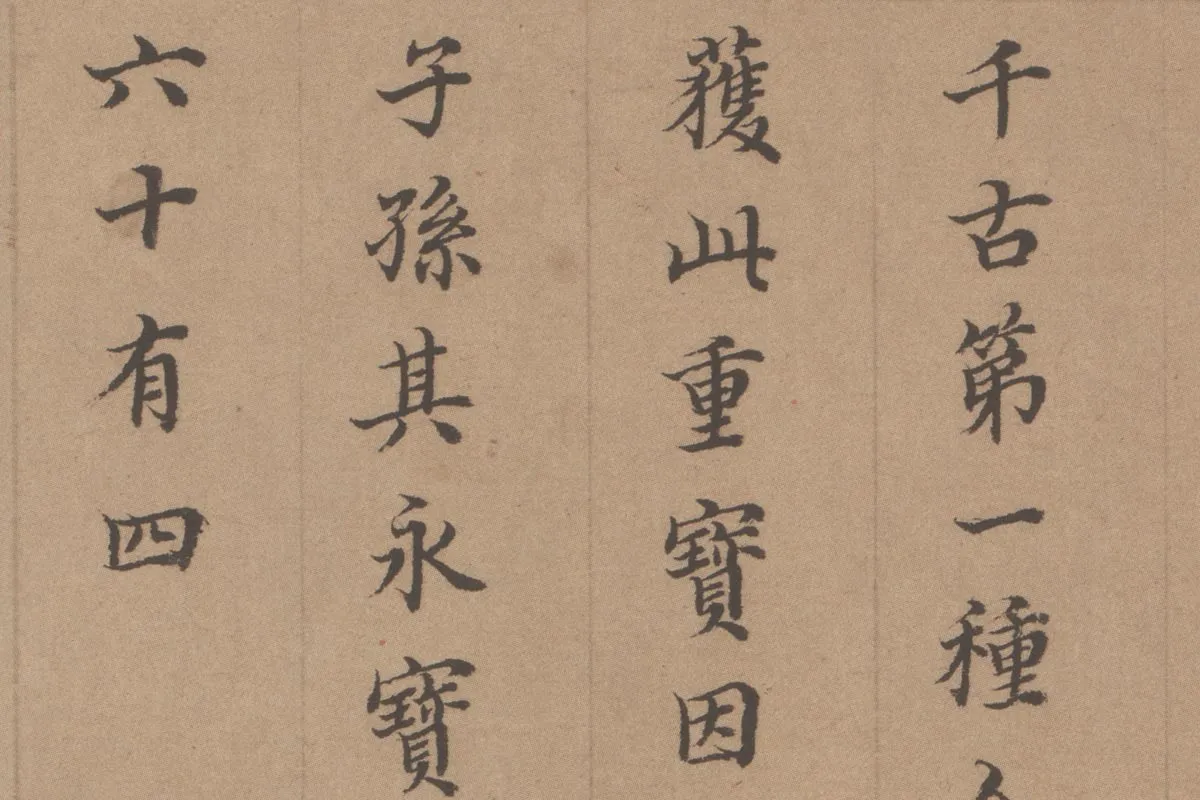 千古第一種
獲此重寶因
子孫其永寶
六十有四